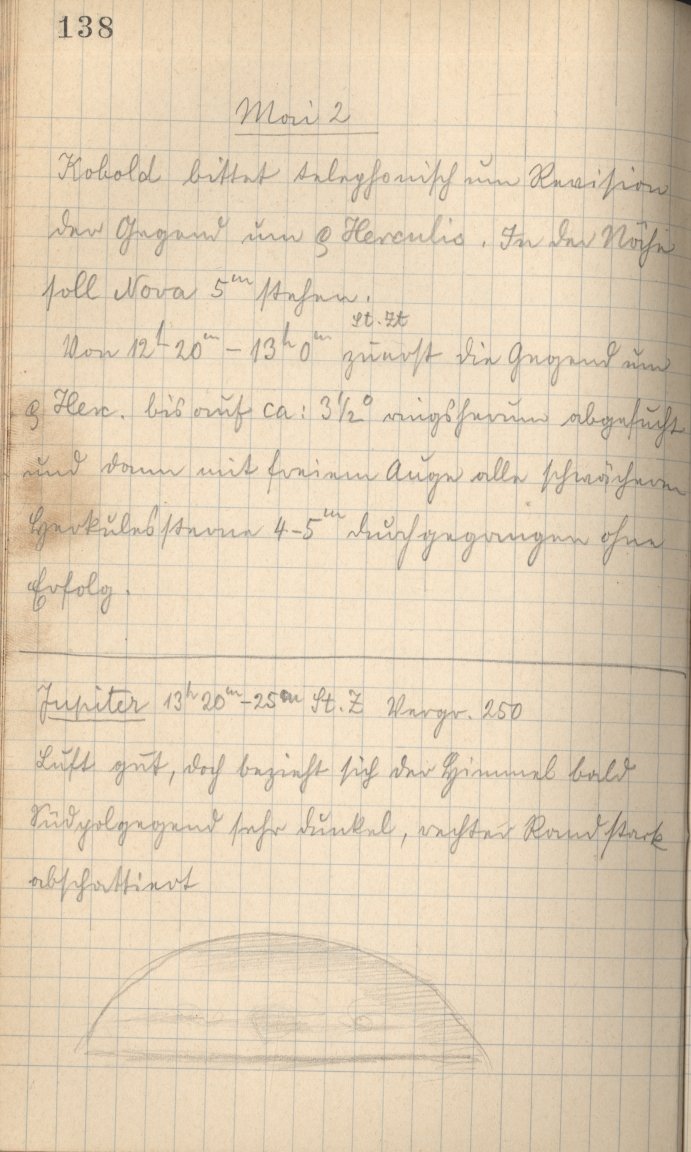 138
Mai 2
Kobold bittet telephonisch um Revision
der Gegend um Herculis. In der Nähe
soll Nova 5ᵐ stehen.
St. Zt
Von 12ʰ 20ᵐ – 13ʰ 0ᵐ zuerst die Gegend um
Herc. bis auf ca: 3½° ringsherum abgesucht
und dann mit freiem Auge alle schwächeren
Herkulessterne 4–5ᵐ durchgegangen ohne
Erfolg.
Jupiter 13ʰ 20ᵐ–25ᵐ St. Z Vergr. 250
Luft gut, doch bezieht sich der Himmel bald
Südpolgegend sehr dunkel, rechter Rand stark
abschattiert